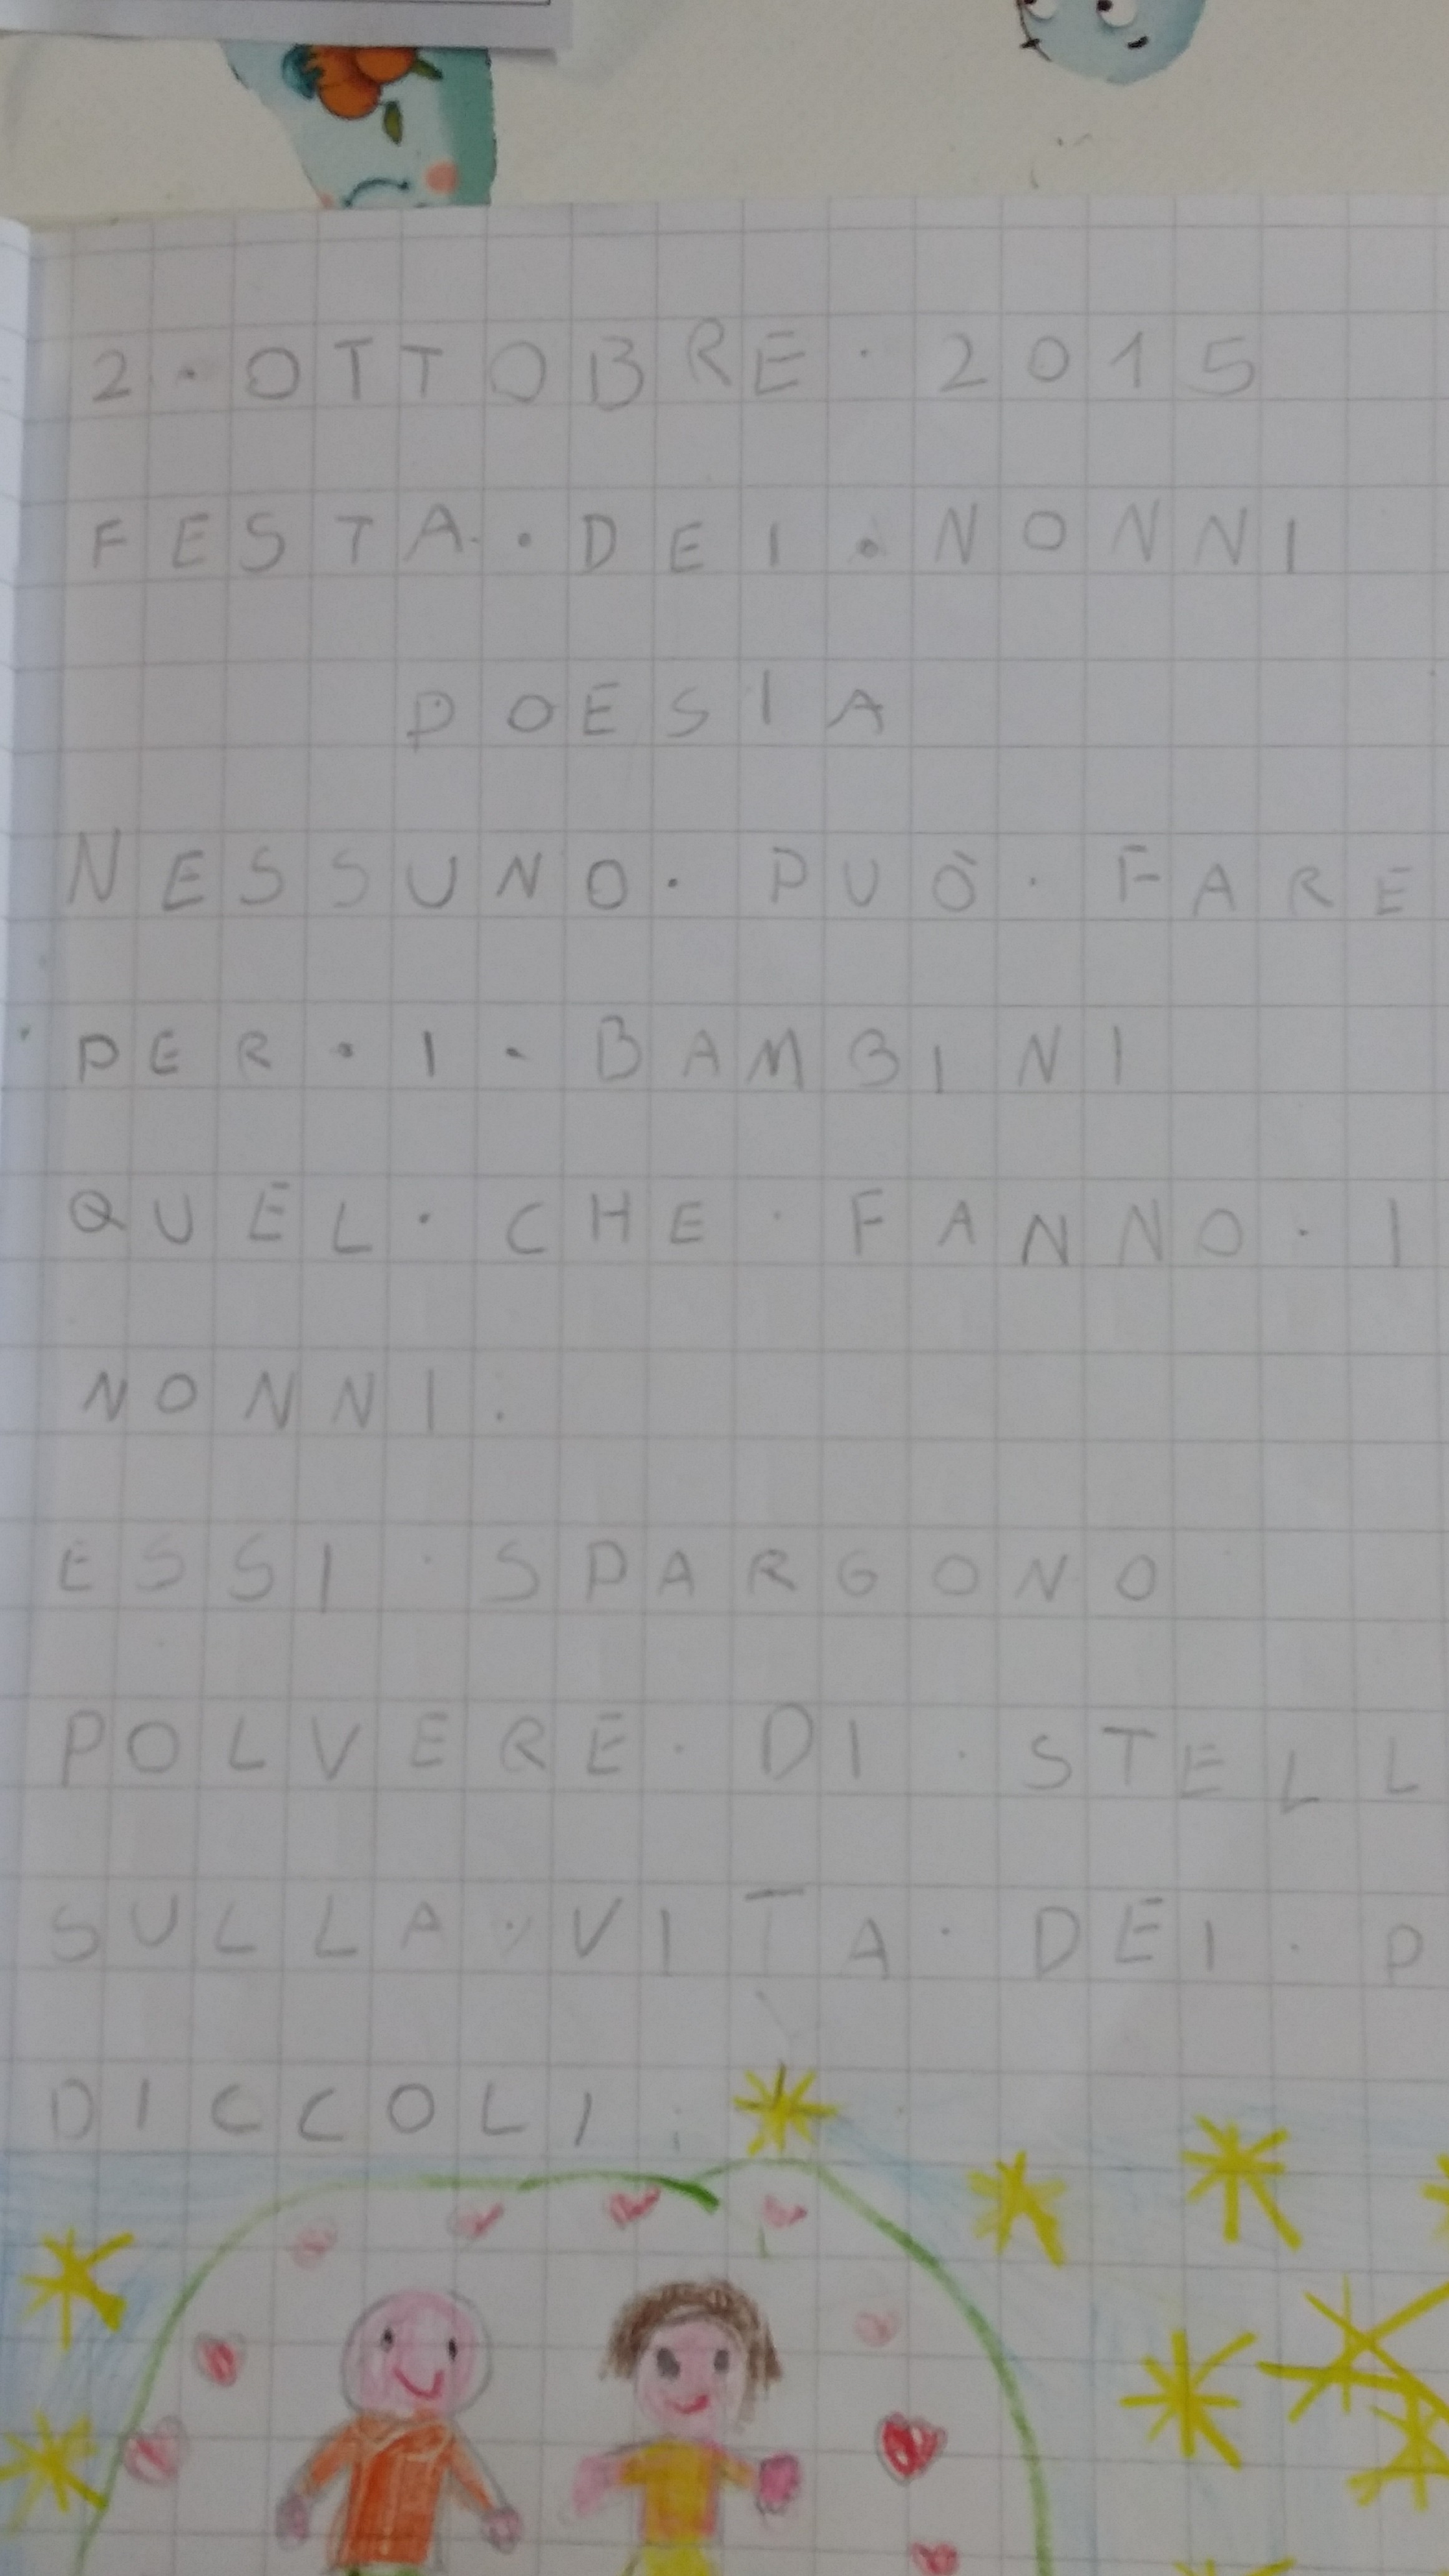 2·OTTOBRE·2015
FESTA·DEI·NONNI
POESIA
NESSUNO·PUÒ·FARE
PER·I·BAMBINI
QUEL·CHE·FANNO·I
NONNI:
ESSI·SPARGONO
POLVERE·DI·STELL
SULLA·VITA·DEI·P
DICCOLI.